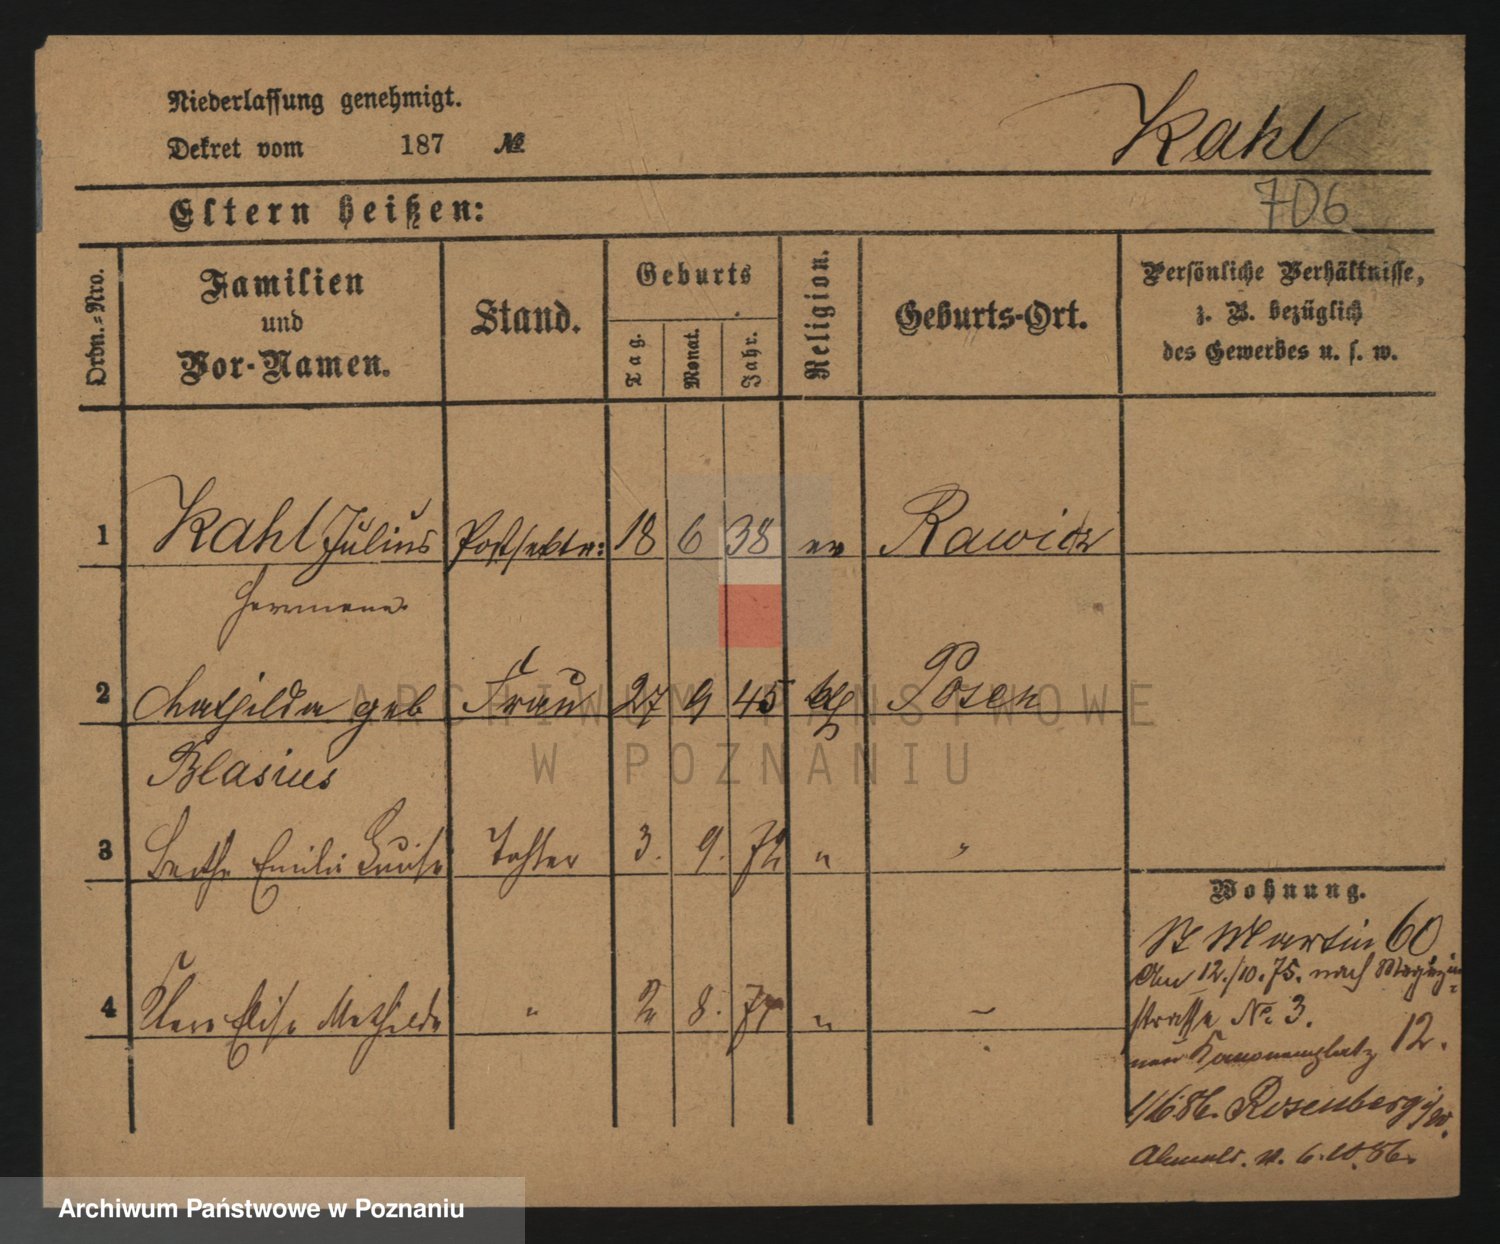 Niederlassung genehmigt.
Dekret vom 187 №
Kahl
706
Eltern heißen:
Ordn.=Nro.
Familien
und
Vor-Namen.
Stand.
Geburts
Tag.
Monat.
Jahr.
Religion.
Geburts-Ort.
Persönliche Verhältnisse,
z. B. bezüglich
des Gewerbes u. s. w.
1 Kahl Julius Postsektr: 18 6 38 ev Rawicz
Herrmann
2 Mathilda geb Frau 27 9 45 Posen
Blasius
3 Bertha Emilie Luise Tochter 3. 9. 72 " "
4 Clara Elise Mathilde " 2 8. 74 "
Wohnung.
St Martin 60
Am 12./10.75. nach Magazin=
strasse No. 3.
Kanonenplatz 12.
1/6.86. Rosenberg
Abmeld. 6.10.86.
ARCHIWUM PAŃSTWOWE
W POZNANIU
Archiwum Państwowe w Poznaniu